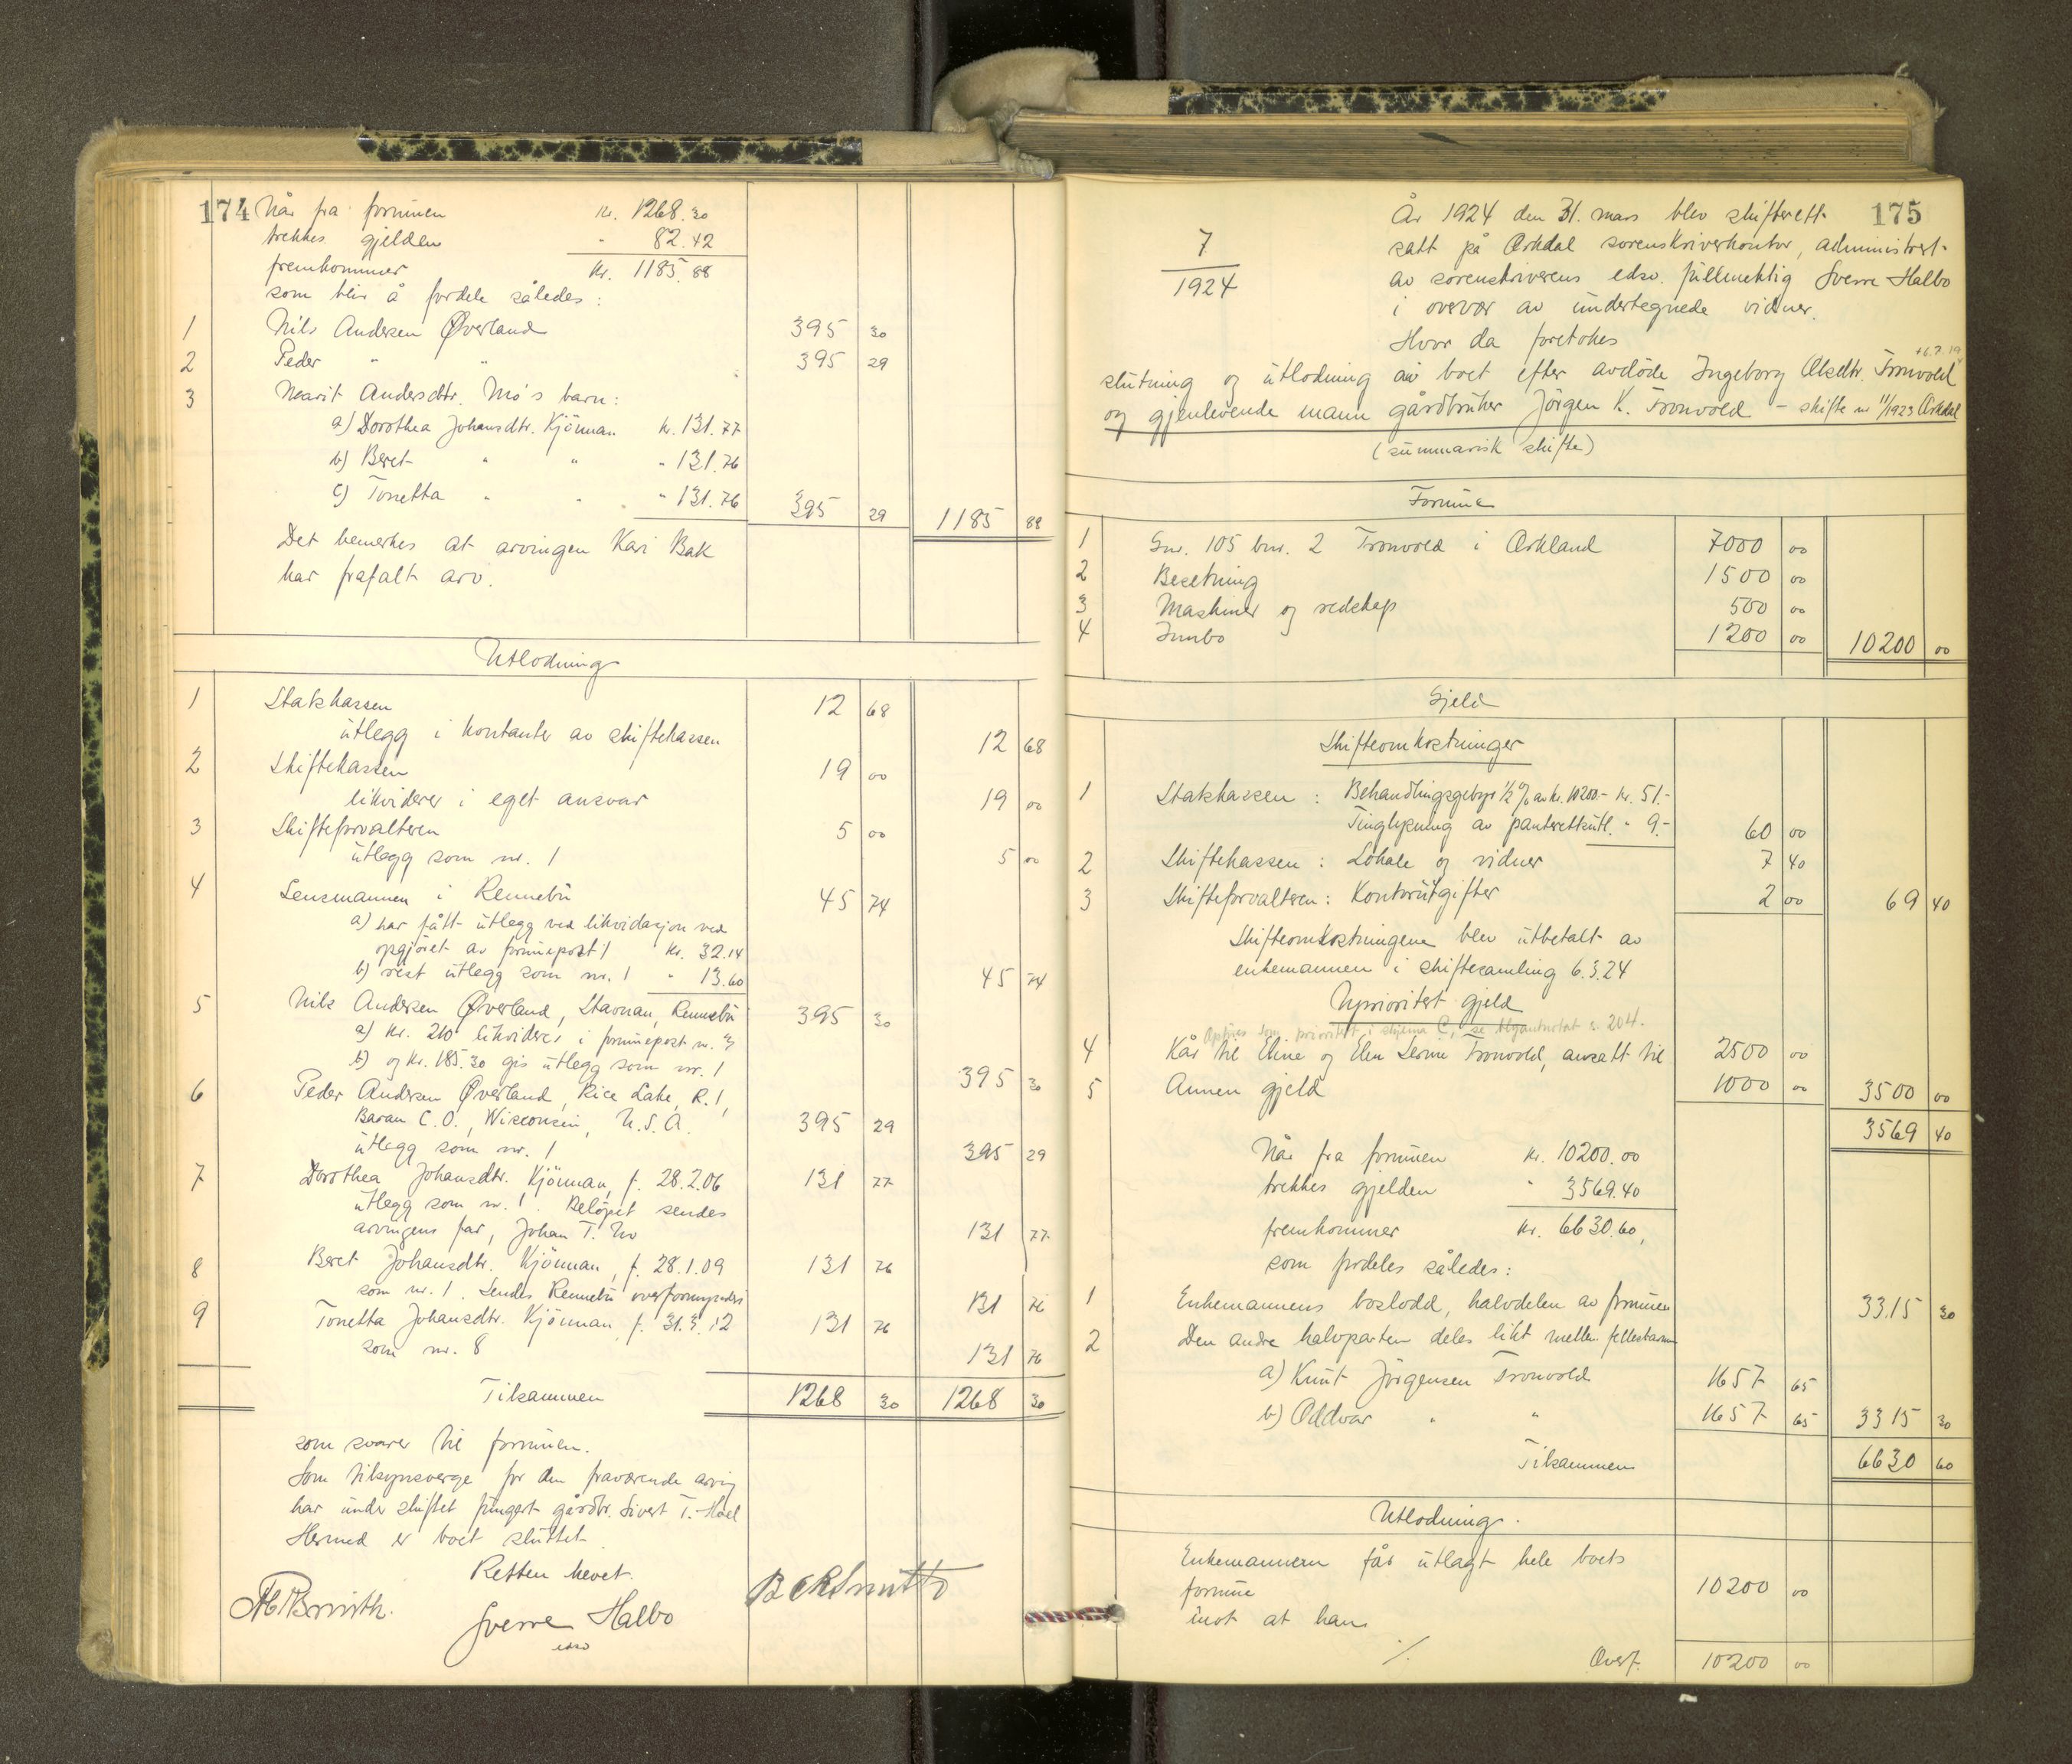 174
Når fra formuen kr. 1268.30
trekkes gjelden " 82.42
fremkommer kr. 1185.88
som blir å fordele således:
1 Nils Andersen Øverland 395 30
2 Peder " " 395 29
3 Marit Andersdtr. Mo's barn:
a) Dorothea Johansdtr. Kjönnan kr. 131.77
b) Beret " " " 131.76
c) Tonetta " " " 131.76 395 29 1185 88
Det bemerkes at arvingen Kari Bak
har frafalt arv.
Utlodning
1 Statskassen 12 68
utlegg i kontanter av skiftekassen 12 68
2 Skiftekassen 19 00
likviderer i eget ansvar 19 00
3 Skifteforvalteren 5 00
utlegg som nr. 1 5 00
4 Lensmannen i Rennebu 45 74
a) har fått utlegg ved likvidasjon ved
opgjöret av formuepost 1 kr. 32.14
b) rest utlegg som nr. 1 " 13.60 45 74
5 Nils Andersen Øverland, Stavnan, Rennebu 395 30
a) kr. 210 likvideres i formuepost nr. 3
b) og kr. 185.30 gis utlegg som nr. 1 395 30
6 Peder Andersen Øverland, Rice Lake, R.1,
Baran C.O., Wisconsin, U.S.A. 395 29
utlegg som nr. 1 395 29
7 Dorothea Johansdtr. Kjönnan, f. 28.2.06 131 77
utlegg som nr. 1. Belöpet sendes
arvingens far, Johan T. Mo 131 77
8 Beret Johansdtr. Kjönnan, f. 28.1.09 131 76
som nr. 1. Sendes Rennebu overformynderi 131 76
9 Tonetta Johansdtr. Kjönnan f. 31.3.12 131 76
som nr. 8 131 76
Tilsammen 1268 30 1268 30
som svarer til formuen.
Som tilsynsverge for den fraværende arving
har under skiftet fungert gårdbr. Sivert T. Hoel
Hermed er boet sluttet.
Retten hevet.
Sverre Halbo
edsv
175
År 1924 den 31. mars blev skifterett
7
1924
satt på Orkdal sorenskriverkontor, administrert
av sorenskriverens edsv. fullmektig Sverre Halbo
i overvær av undertegnede vidner.
Hvor da foretokes
slutning og utlodning av boet efter avdöde Ingeborg Olsdtr. Tronvold
og gjenlevende mann gårdbruker Jörgen K. Tronvold – skifte nr 11/1923 Orkdal
(summarisk skifte)
Formue
1 Gnr. 105 bnr. 2 Tronvold i Orkland 7000 00
2 Besetning 1500 00
3 Maskiner og redskap 500 00
4 Innbo 1200 00 10200 00
Gjeld
Skifteomkostninger
1 Statskassen: Behandlingsgebyr 1/2 % av kr. 10200.- kr. 51.-
Tinglysning av panterettsutl. " 9.- 60 00
2 Skiftekassen: Lokale og vidner 7 40
3 Skifteforvalteren: Kontorutgifter 2 00 69 40
Skifteomkostningene blev utbetalt av
enkemannen i skiftesamling 6.3.24
Uprioritert gjeld
Opföres som prioritet i skjema C, se utgåntnotat s. 204.
4 Kår til Eline og Elen Serine Tronvold, ansatt til 2500 00
5 Annen gjeld 1000 00 3500 00
3569 40
Når fra formuen kr. 10200.00
trekkes gjelden " 3569.40
fremkommer kr. 6630.60,
som fordeles således:
1 Enkemannens boslodd, halvdelen av formuen 3315 30
2 Den andre halvparten deles likt mellem fellesbarna
a) Knut Jörgensen Tronvold 1657 65
b) Oddvar " " 1657 65 3315 30
Tilsammen 6630 60
Utlodning.
Enkemannen får utlagt hele boets
formue 10200 00
imot at han
./. Overf. 10200 00